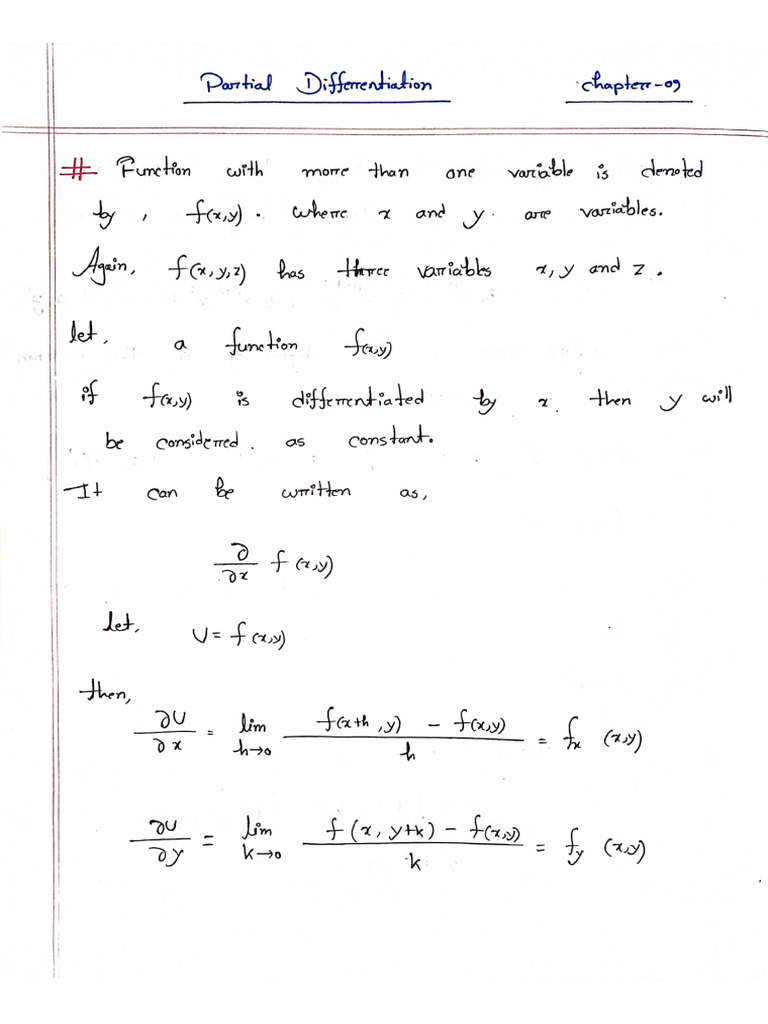 Partial Differentiation chapter-09
# Function with more than one variable is denoted
by, f(x,y). where x and y are variables.
Again, f(x,y,z) has three variables x, y and z.
let, a function f(x,y)
if f(x,y) is differentiated by x. then y will
be considered. as constant.
It can be written as,
∂/∂x f(x,y)
let, U = f(x,y)
then,
∂U/∂x = lim h→0 (f(x+h, y) - f(x,y))/h = fx (x,y)
∂U/∂y = lim k→0 (f(x, y+k) - f(x,y))/k = fy (x,y)